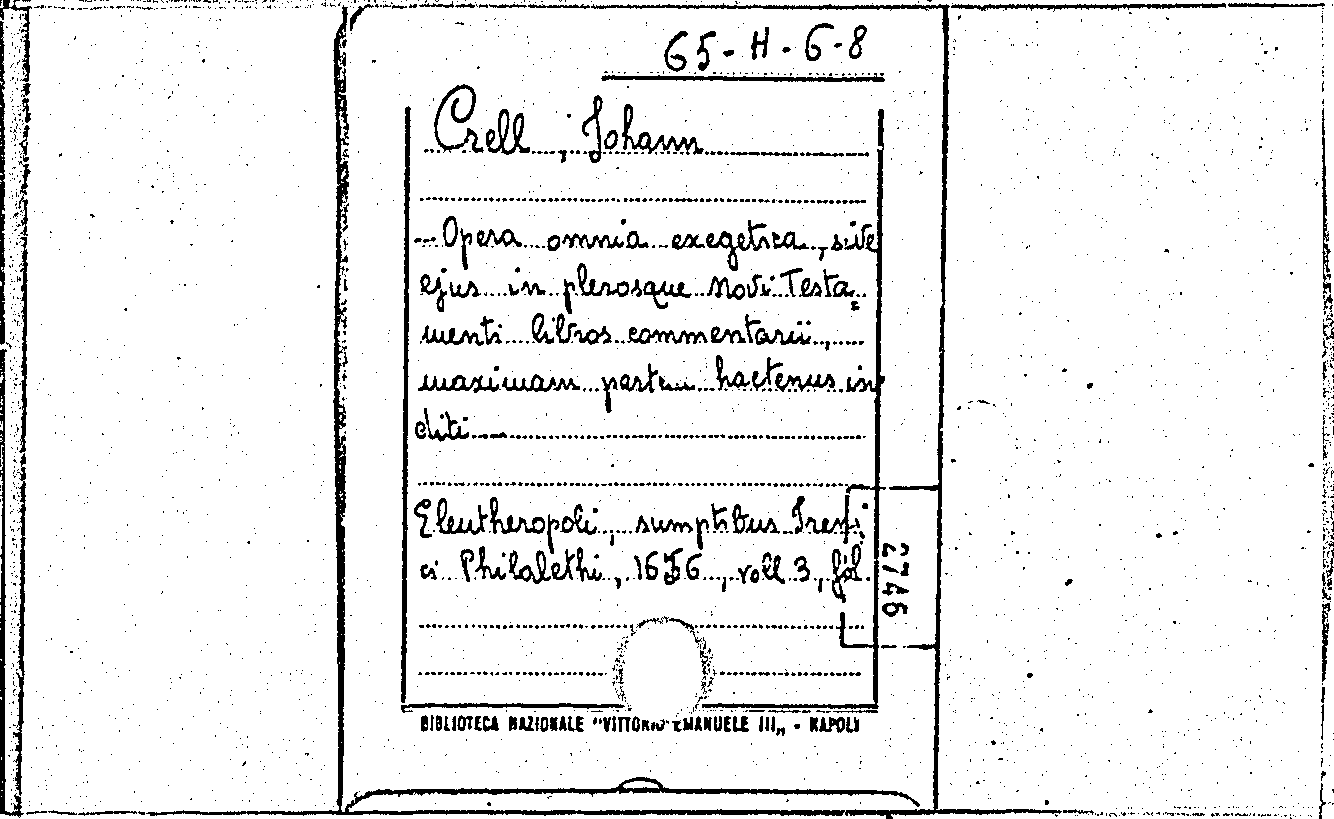 65-H-6-8
Crell, Johann
- Opera omnia exegetica, sive
ejus in plerosque Novi Testa=
menti libros commentarii,
maximam partem hactenus ine
diti -
Eleutheropoli, sumptibus Ireni
ci Philalethi, 1656, voll 3, fol.
2746
BIBLIOTECA NAZIONALE "VITTORIO EMANUELE III„ - NAPOLI